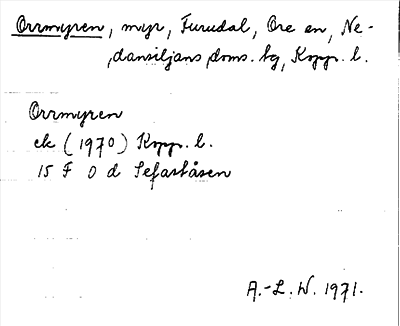 Orrmyren, myr, Furudal, Ore en, Ne-
dansiljans doms. hg, Kopp. l.
Orrmyren
ek (1970) Kopp. l.
15 F 0 d Sefaståsen
A.-L. W. 1971.